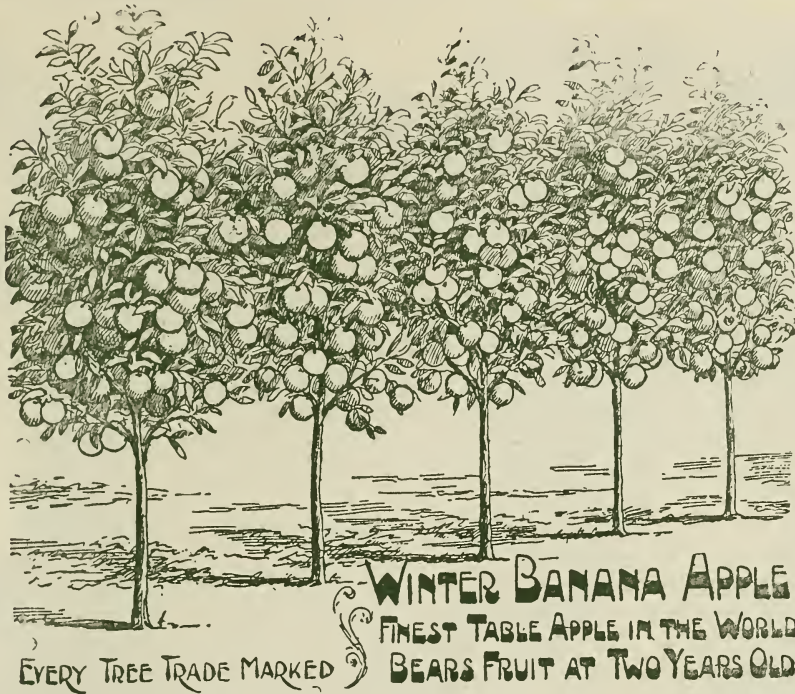 WINTER BANANA APPLE
FINEST TABLE APPLE IN THE WORLD
EVERY TREE TRADE MARKED
BEARS FRUIT AT TWO YEARS OLD